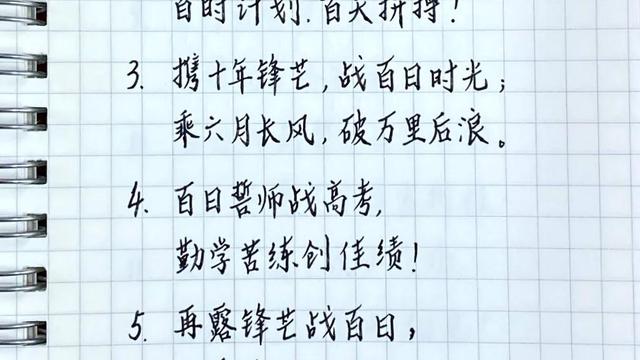 百时计划.百天拼搏!
3. 携十年锋芒,战百日时光;
乘六月长风,破万里后浪。
4. 百日誓师战高考,
勤学苦练创佳绩!
5. 再露锋芒战百日,